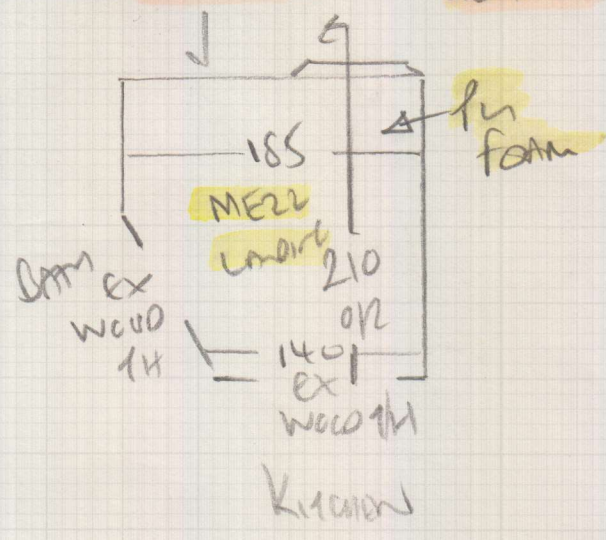 185
In
FOAM
MEZZ
LANDING
210
O/R
BATH
EX
WOOD
T/H
140
EX
WOOD T/H
KITCHEN